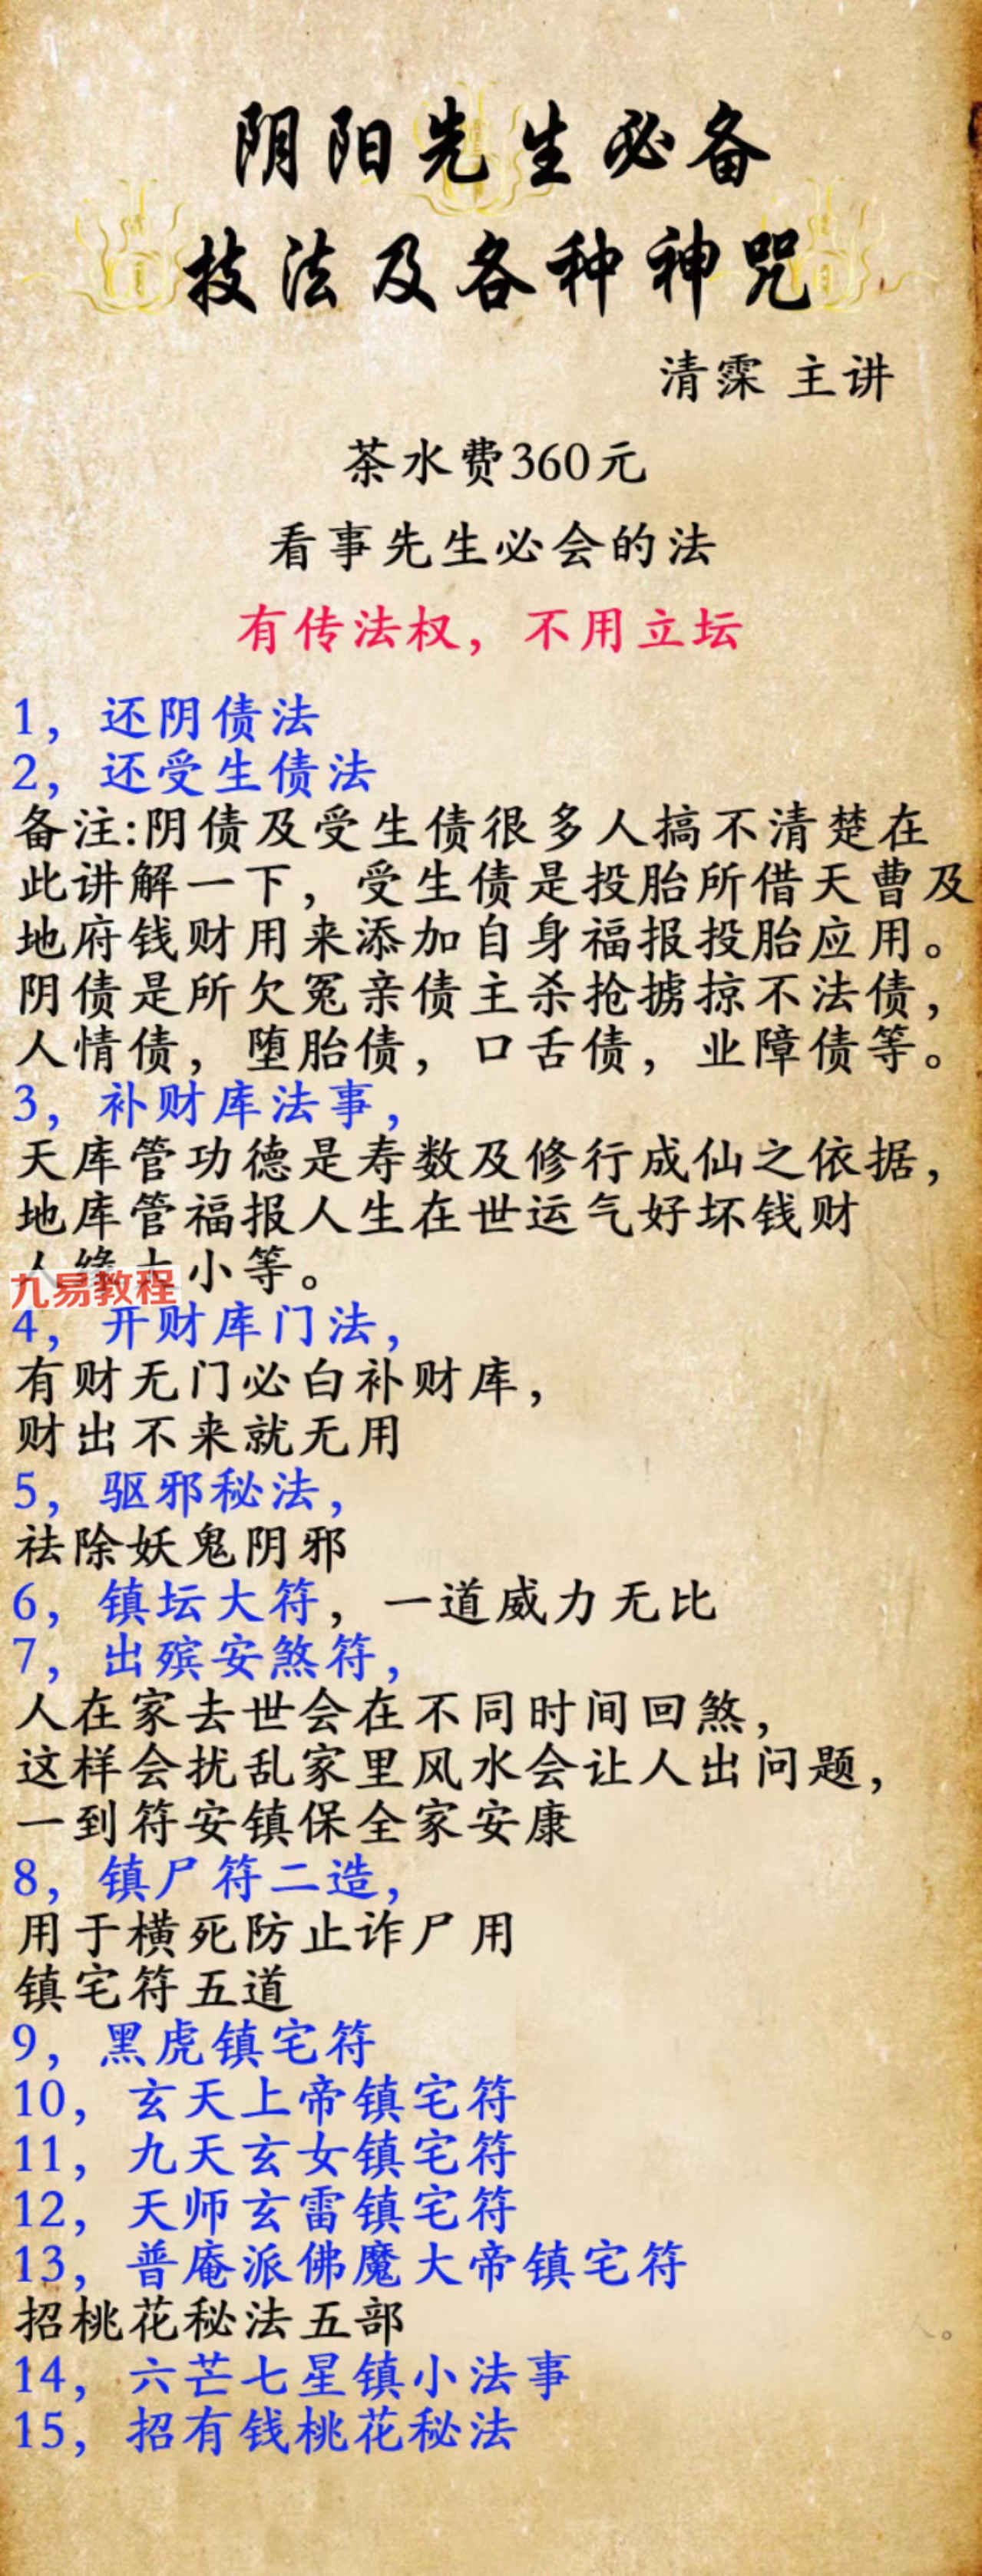 阴阳先生必备
技法及各种神咒
清霂 主讲
茶水费360元
看事先生必会的法
有传法权，不用立坛
1，还阴债法
2，还受生债法
备注:阴债及受生债很多人搞不清楚在
此讲解一下，受生债是投胎所借天曹及
地府钱财用来添加自身福报投胎应用。
阴债是所欠冤亲债主杀抢掳掠不法债，
人情债，堕胎债，口舌债，业障债等。
3，补财库法事，
天库管功德是寿数及修行成仙之依据，
地库管福报人生在世运气好坏钱财
人缘大小等。
九易教程
4，开财库门法，
有财无门必白补财库，
财出不来就无用
5，驱邪秘法，
祛除妖鬼阴邪
6，镇坛大符，一道威力无比
7，出殡安煞符，
人在家去世会在不同时间回煞，
这样会扰乱家里风水会让人出问题，
一到符安镇保全家安康
8，镇尸符二造，
用于横死防止诈尸用
镇宅符五道
9，黑虎镇宅符
10，玄天上帝镇宅符
11，九天玄女镇宅符
12，天师玄雷镇宅符
13，普庵派佛魔大帝镇宅符
招桃花秘法五部
14，六芒七星镇小法事
15，招有钱桃花秘法